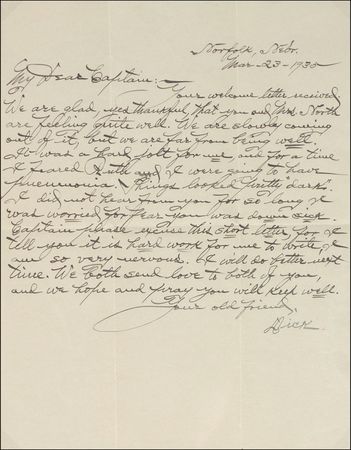 Norfolk, Nebr.
Mar-23-1935
My Dear Captain:-
Your welcome letter received
We are glad, yes thankful, that you and Mrs. North
are feeling quite well. We are slowly coming
out of it, but we are far from being well.
It was a hard jolt for me and for a time
I feared Ruth and I were going to have
pneumonia. Things looked pretty "dark".
I did not hear from you for so long I
was worried for fear you was down sick.
Captain please excuse this short letter, for I
tell you it is hard work for me to write, I
am so very nervous. I will do better next
time. We both send love to both of you,
and we hope and pray you will keep well.
Your old friend,
Dick